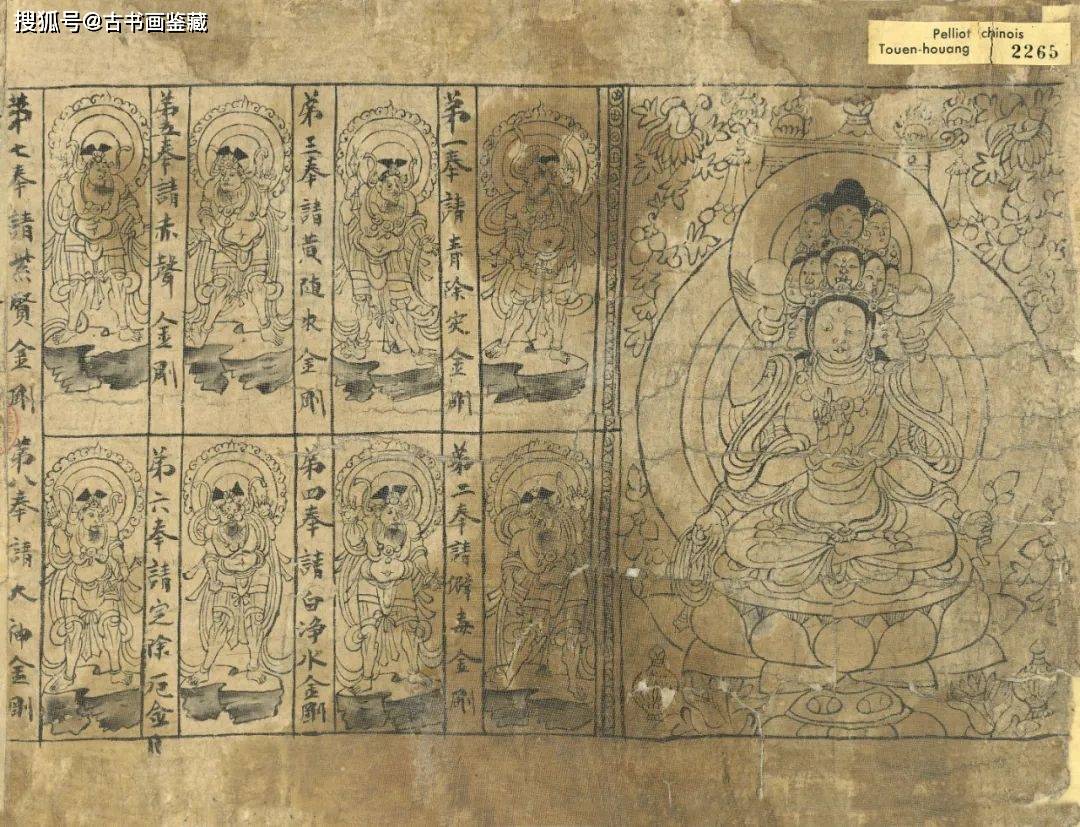 搜狐号@古书画鉴藏
Pelliot chinois
Touen-houang 2265
第一奉請青除灾金剛
第二奉請僻毒金剛
第三奉請黄随求金剛
第四奉請白净水金剛
第五奉請赤聲金剛
第六奉請定除厄金剛
第七奉請紫賢金剛
第八奉請大神金剛